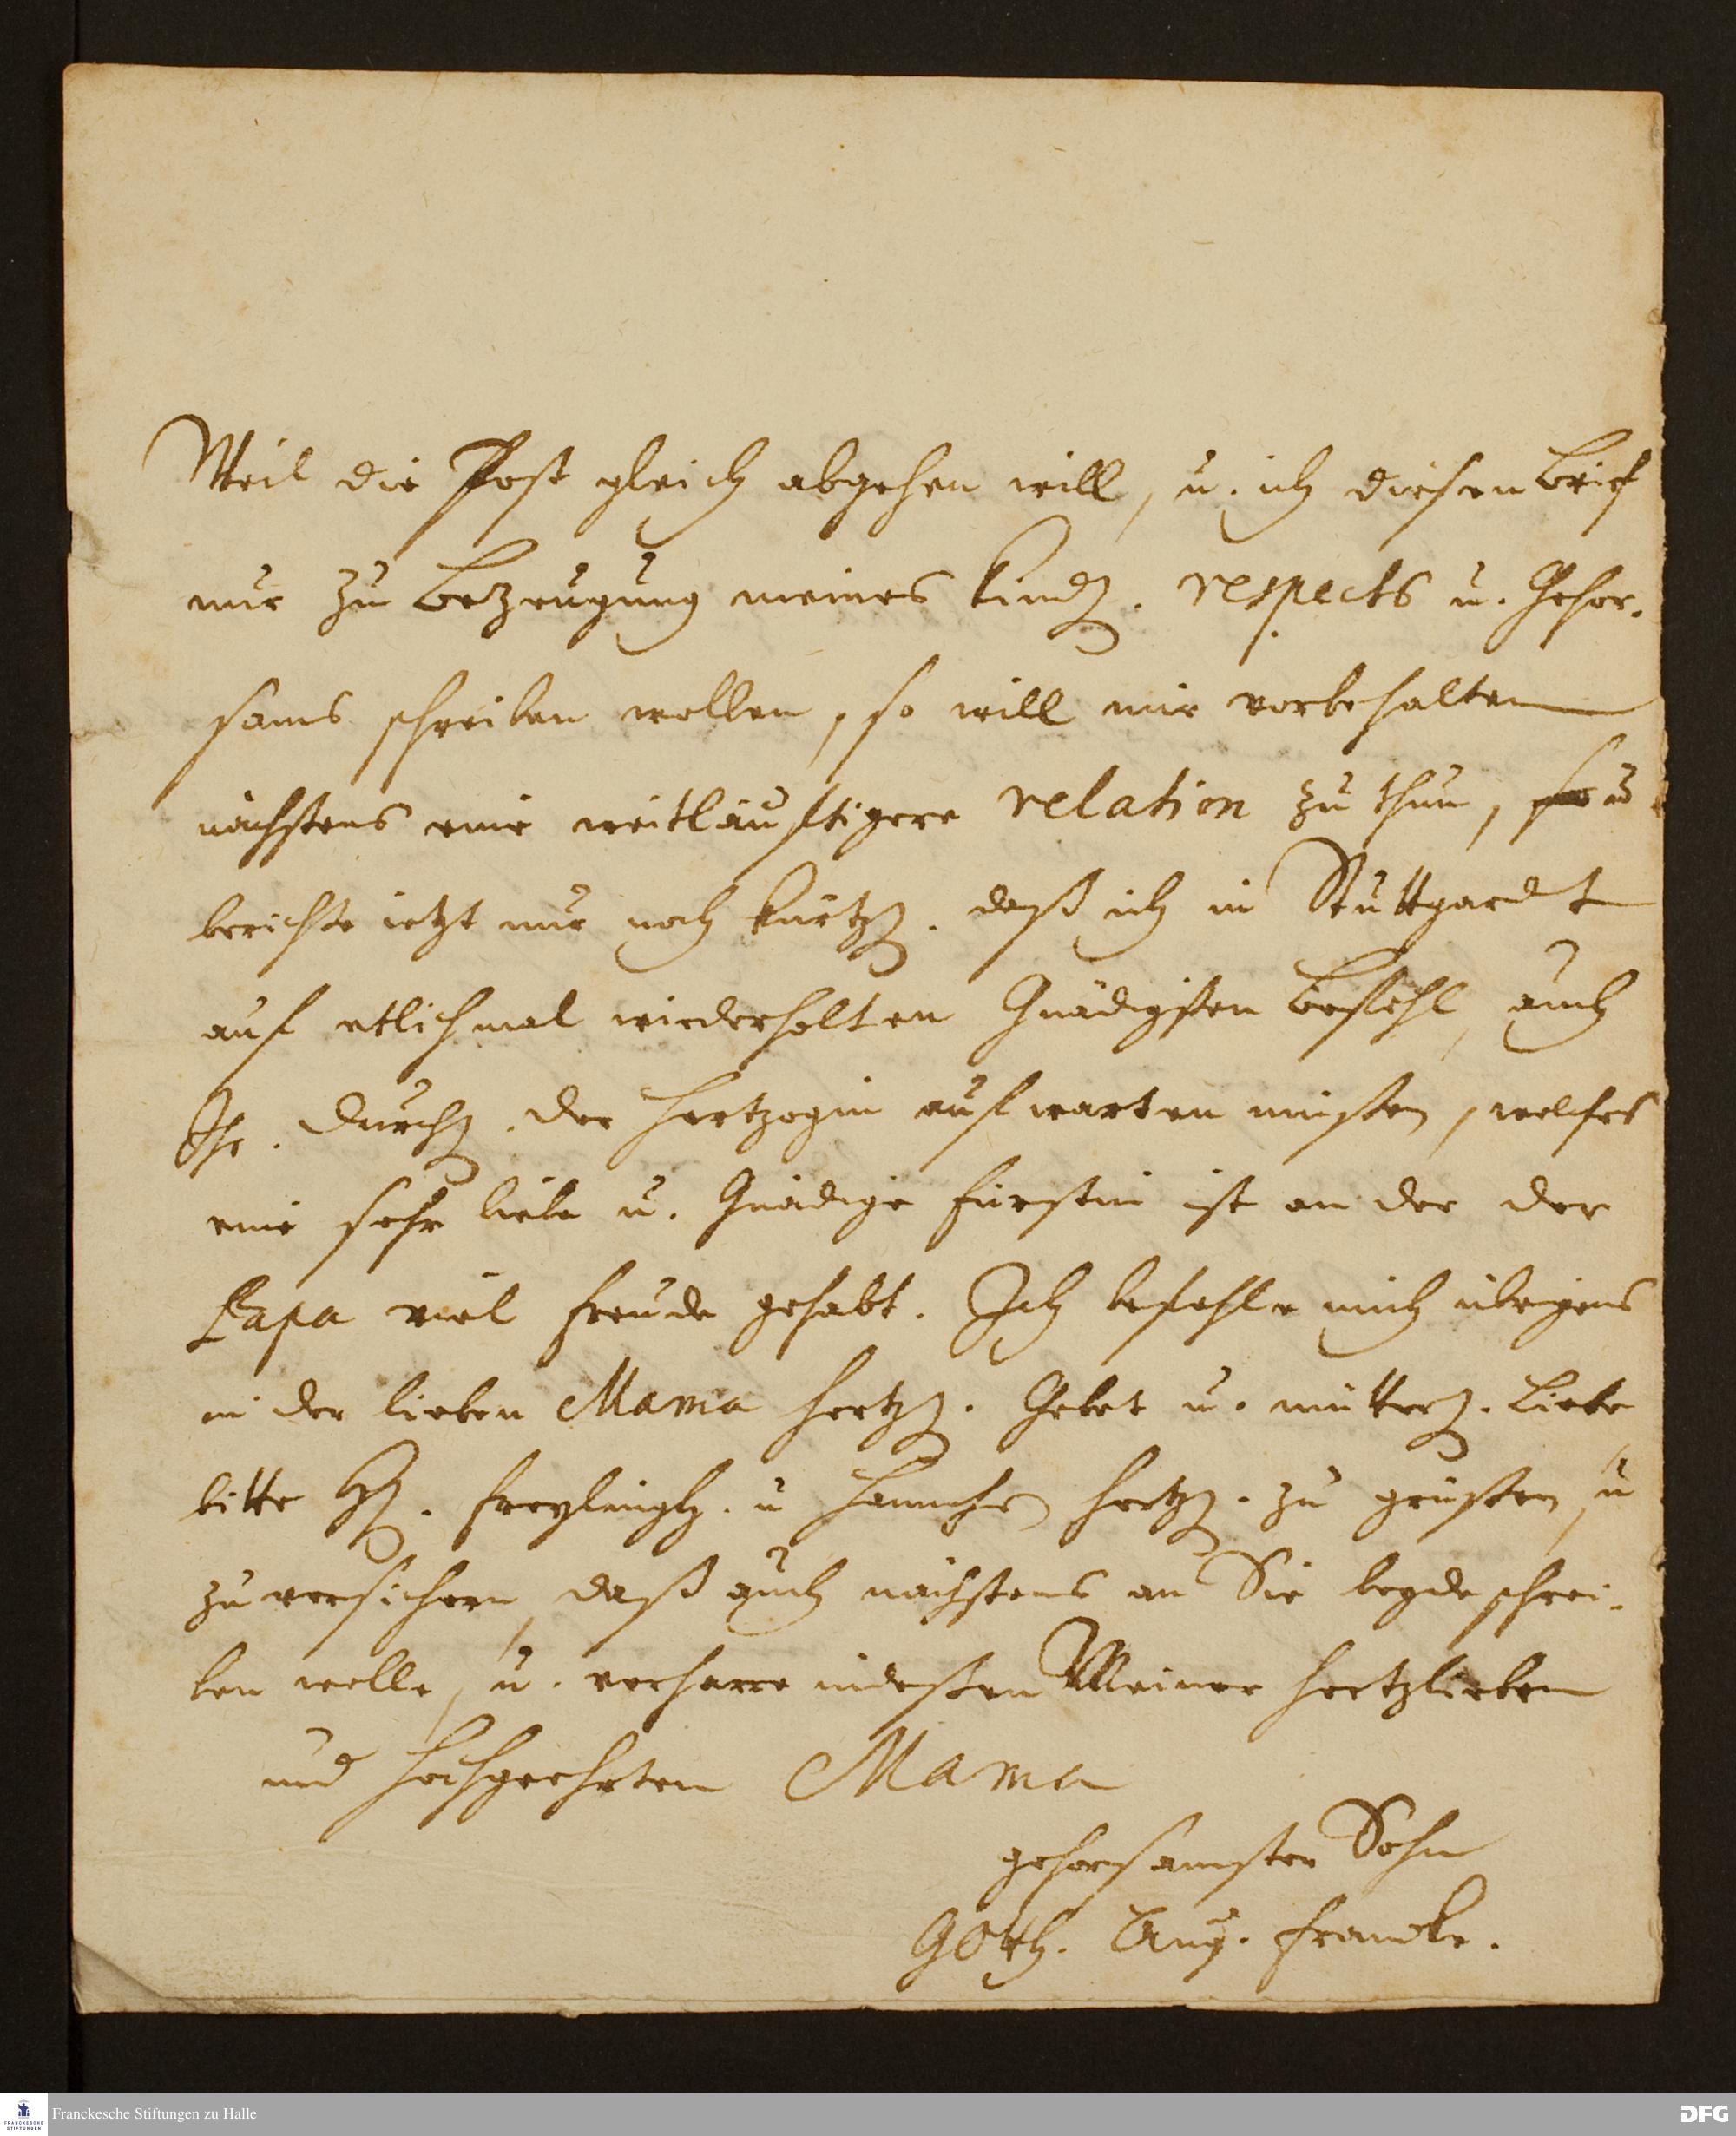 Weil die Post gleich abgehen will, u. ich diesen Brief
nur zu Bezeugung meines kindl. respects u. Gehor-
sams schreiben wollen, so will mir vorbehalten
nächstens eine weitläufftigere relation zu thun, u.
berichte ietzt nur noch kürtzl. daß ich in Stuttgardt
auf etlichmal wiederholten Gnädigsten Befehl, auch
Ihr. Durchl. der Hertzogin aufwarten müßen, welches
eine sehr liebe u. Gnädige Fürstin ist an der der
Papa viel Freude gehabt. Ich befehle mich übrigens
in der lieben Mama hertzl. Gebet u. mütterl. Liebe
bitte H. Freylingh. u Hannchen hertzl. zu grüßen, u
zu versichern, daß auch nächstens an Sie beyde schrei-
ben wolle, u. verharre indeßen Meiner hertzlieben
und hochgeehrten Mama
gehorsamster Sohn
Gotth. Aug. Francke.
Franckesche Stiftungen zu Halle
FRANCKESCHE
STIFTUNGEN
DFG